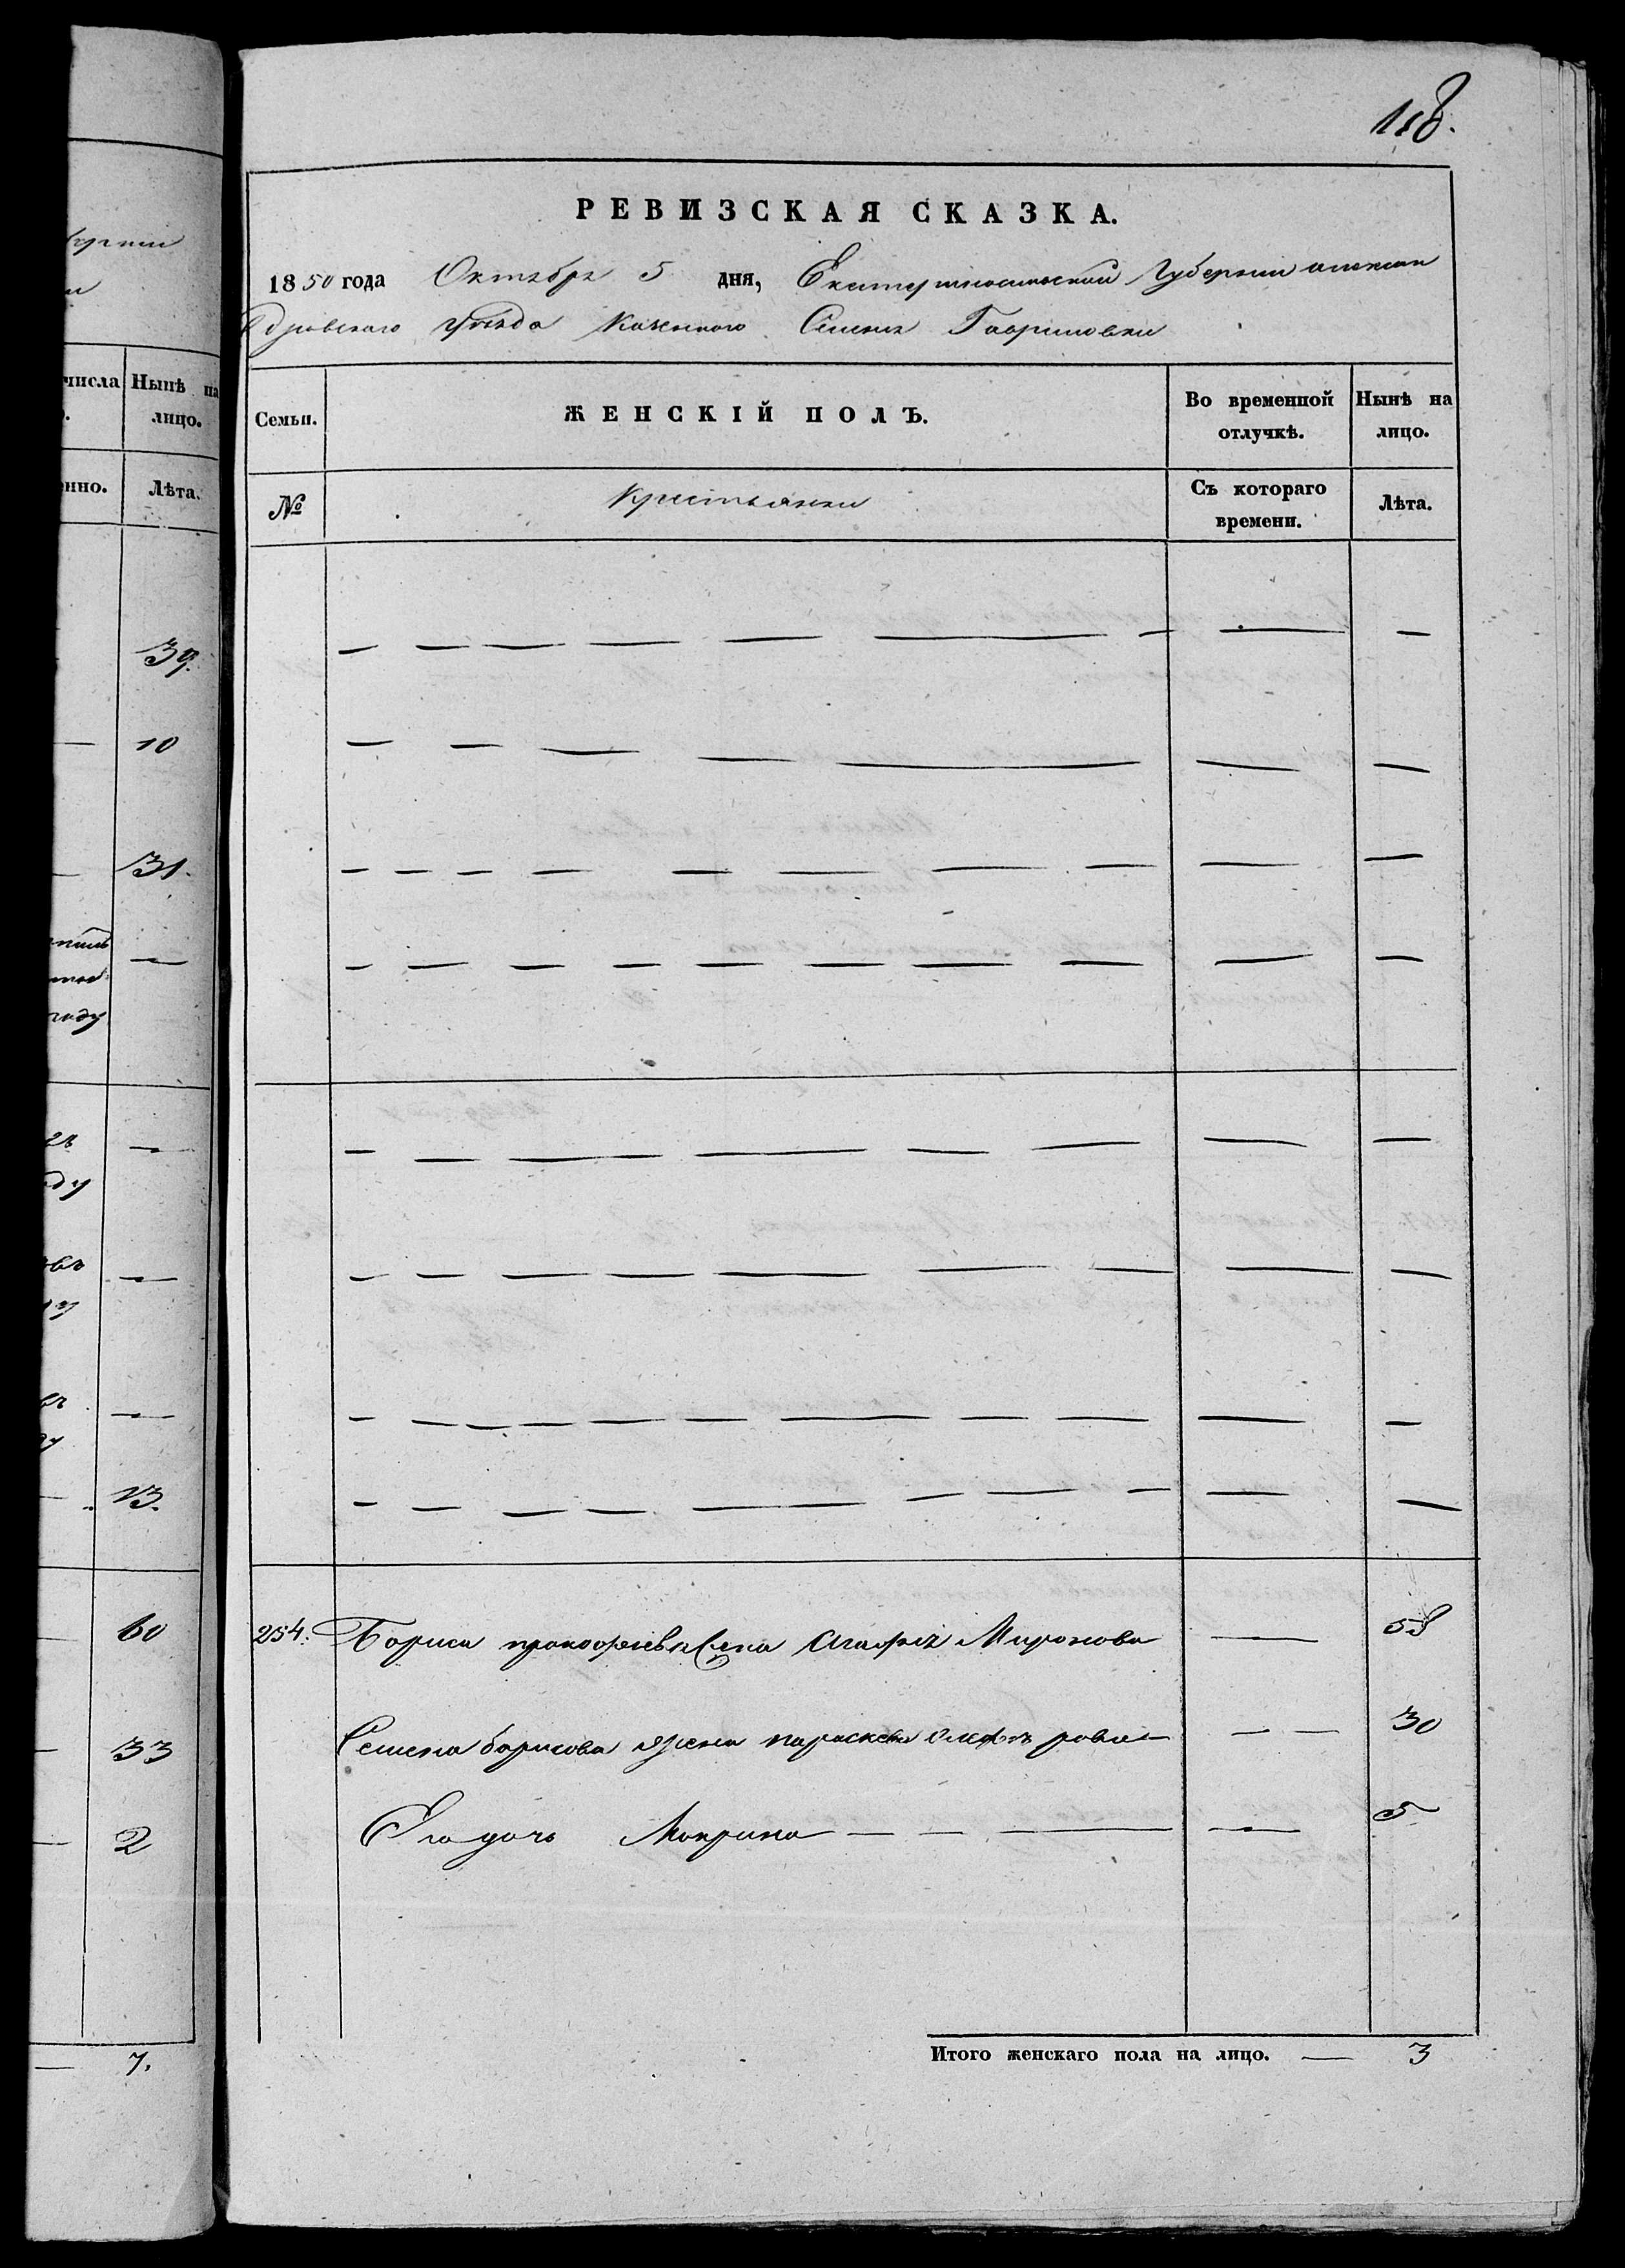 118.
РЕВИЗСКАЯ СКАЗКА.
1850 года Октября 5 дня, Екатеринославской Губернии алексан
дровскаго уѣзда Казенного Селенія Гавриловки
Семьи. ЖЕНСКІЙ ПОЛЪ. Во временной отлучкѣ. Нынѣ на лицо.
№ Крестьянки Съ котораго времени. Лѣта.
254. Бориса прокофьева жена Агафія Миронова — 58
Семена борисова жена параскева — — 30
Его дочь Макрина — — — — 5
Итого женскаго пола на лицо. — 3
числа Нынѣ на
лицо.
Лѣта.
39.
10
31.
13.
60
33
2
7.